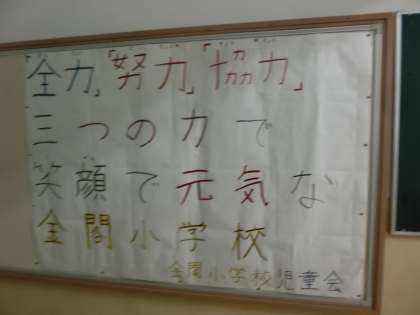 「全力」「努力」「協力」
三つの力で
笑顔で元気な
金閣小学校
金閣小学校児童会